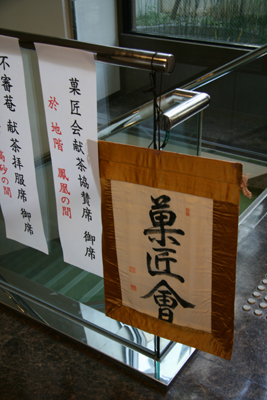 菓匠会献茶協賛席 御席
於 地階 鳳凰の間
不審菴 献茶拝服席 御席
高砂の間
菓匠會